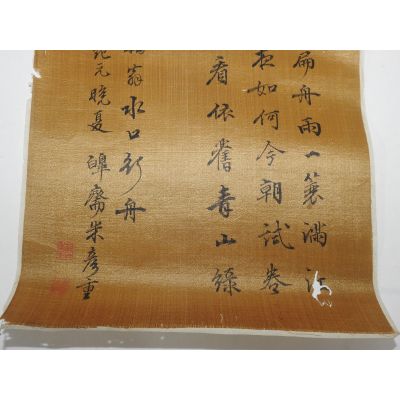 扁舟雨一蓑滿江
夜如何今朝試卷
看依舊青山綠
翁水口行舟
元晚夏 齋米彦重